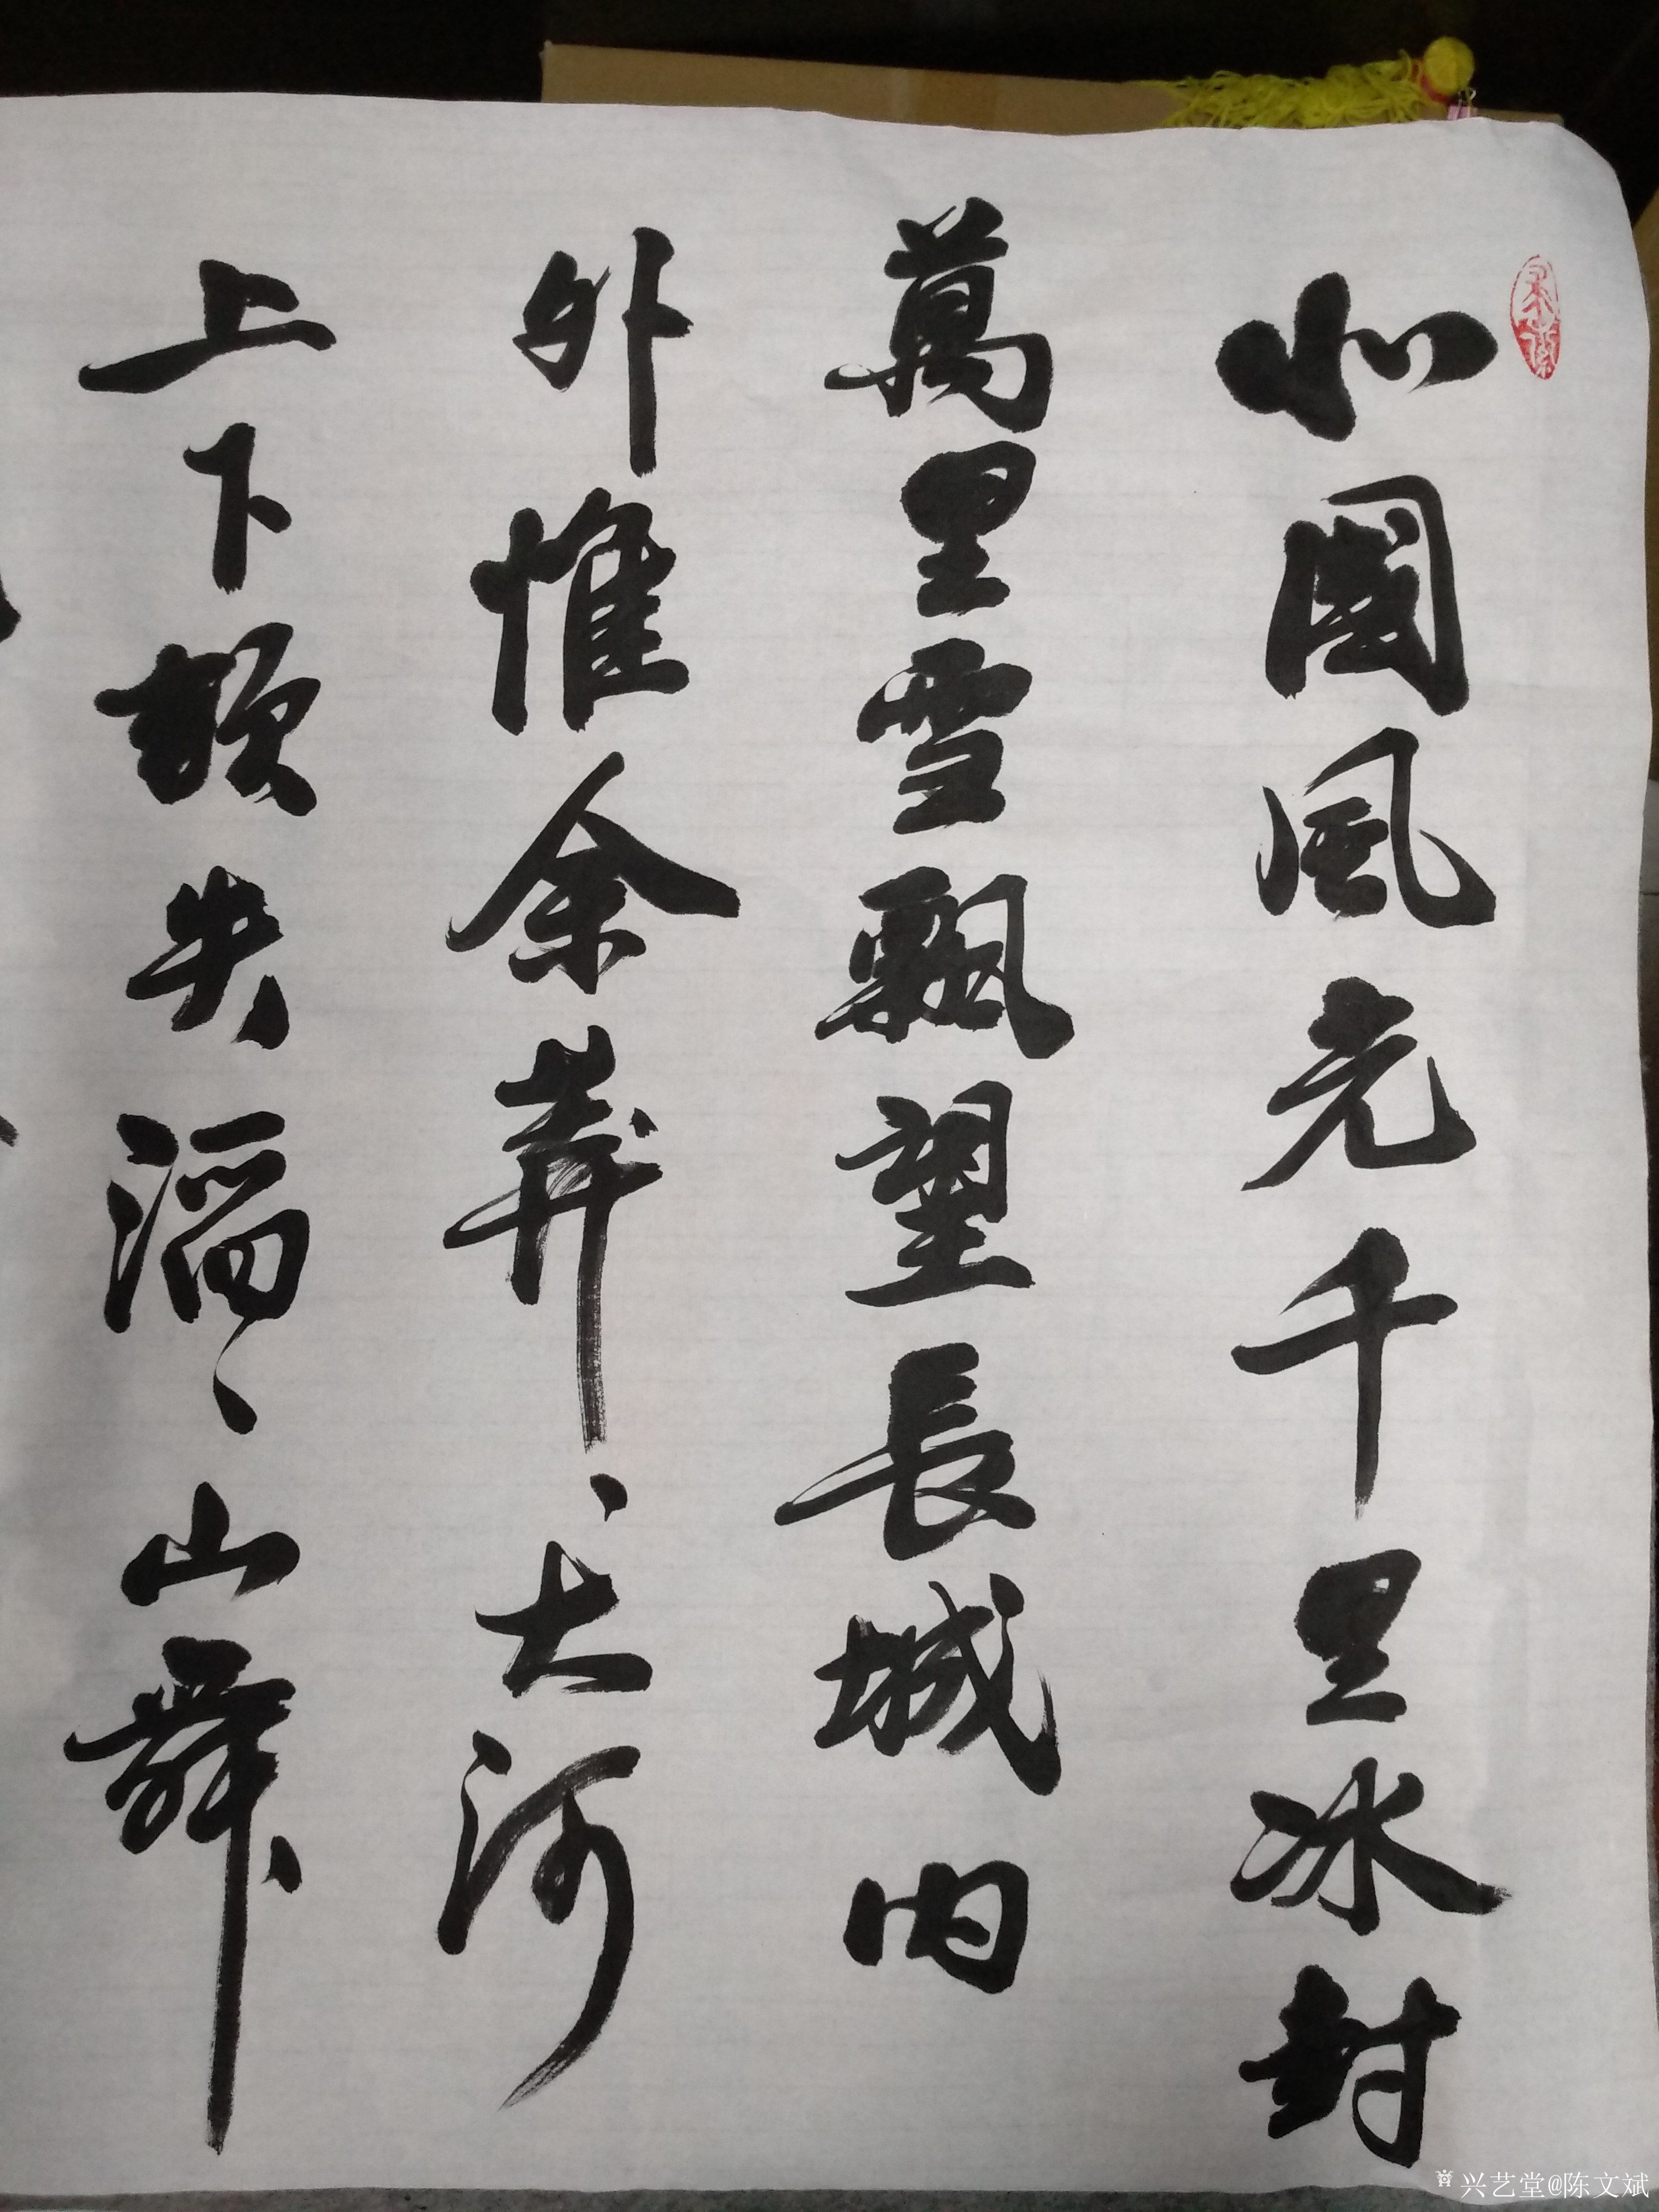 北國風光千里冰封
萬里雪飄望長城内
外惟余莽、大河
上下頓失滔、山舞
兴艺堂@陈文斌